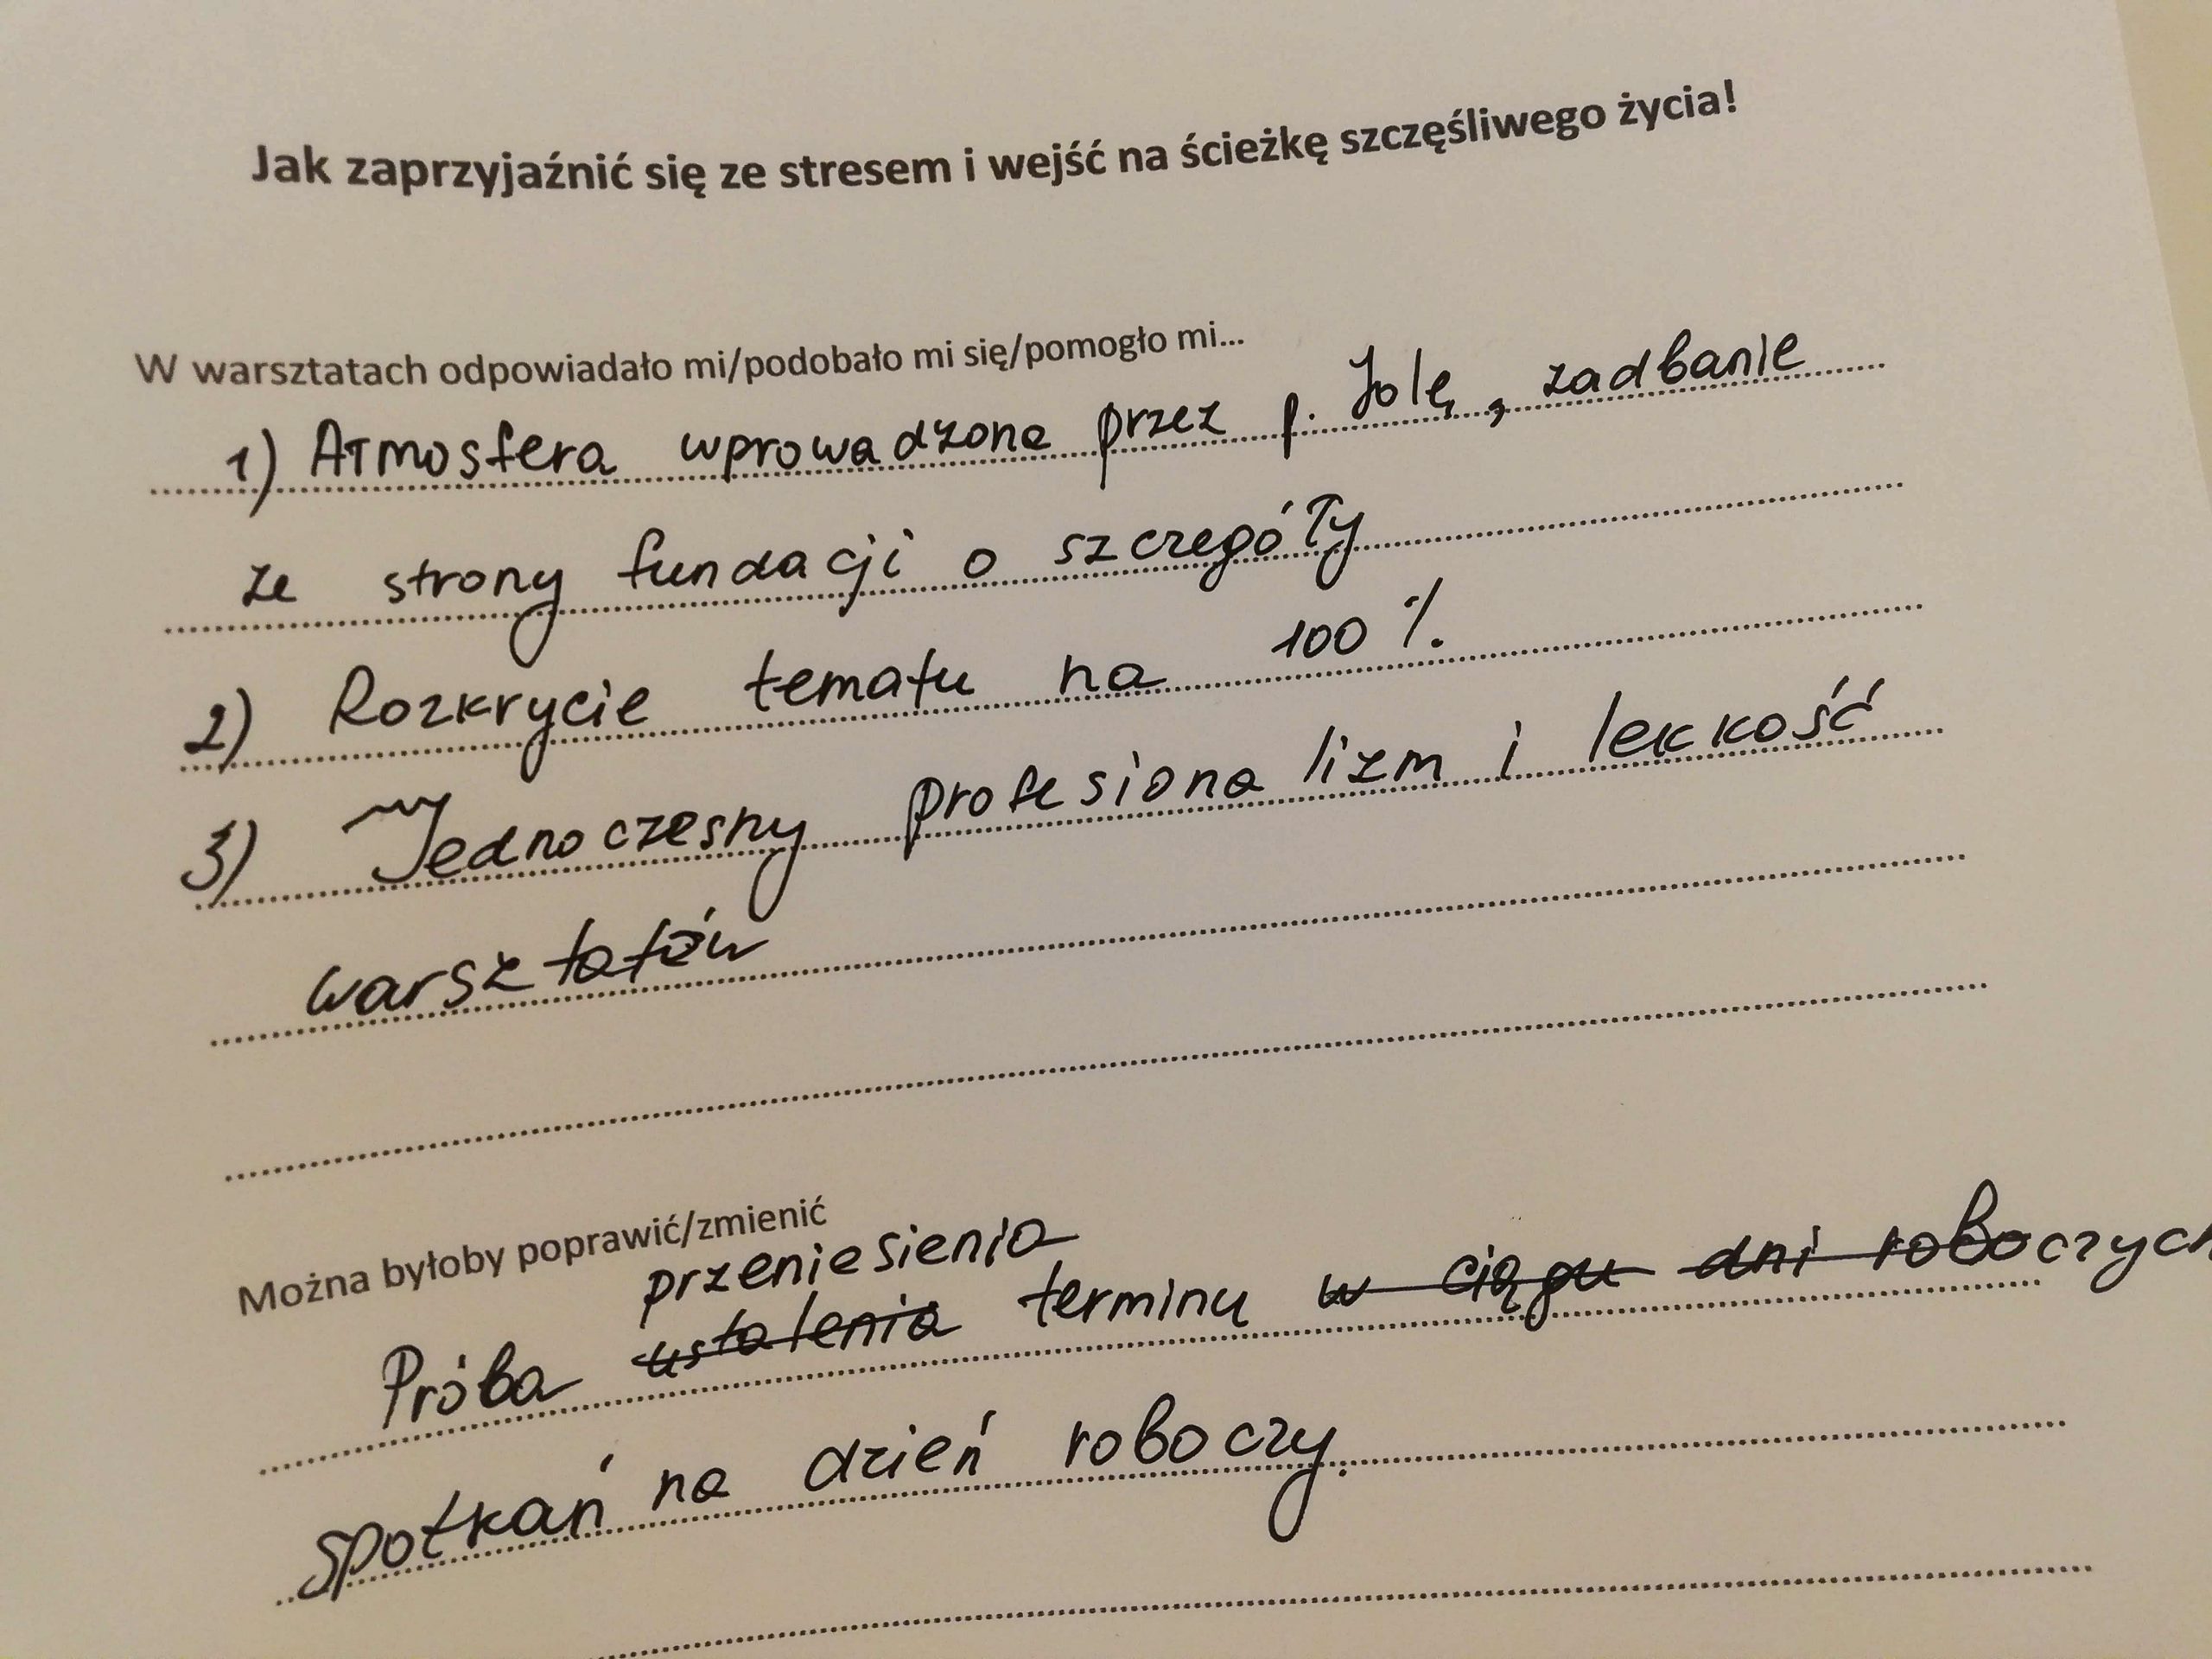 Jak zaprzyjaźnić się ze stresem i wejść na ścieżkę szczęśliwego życia!
W warsztatach odpowiadało mi/podobało mi się/pomogło mi...
1) Atmosfera wprowadzona przez p. Jolę, zadbanie
ze strony fundacji o szczegóły
2) Rozkrycie tematu na 100 %
3) Jednoczesny profesionalizm i lekkość
warsztatów
Można byłoby poprawić/zmienić
przeniesienia
Próba ustalenia terminu w ciągu dni roboczych
spotkań na dzień roboczy.